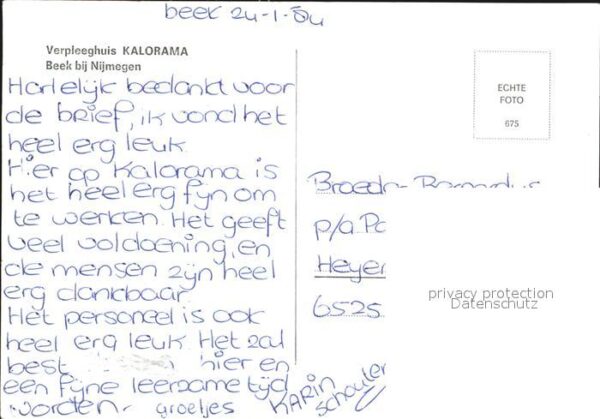 beek 24-1-84
Verpleeghuis KALORAMA
Beek bij Nijmegen
Hartelijk bedankt voor
de brief, ik vond het
heel erg leuk.
Hier op Kalorama is
het heel erg fijn om
te werken. Het geeft
veel voldoening, en
de mensen zijn heel
erg dankbaar.
Het personeel is ook
heel erg leuk. Het zal
best hier en
een fijne leerzame tijd
worden. groetjes
KARIN
ECHTE
FOTO
675
p/a. Pc
Heyer
6525
privacy protection
Datenschutz